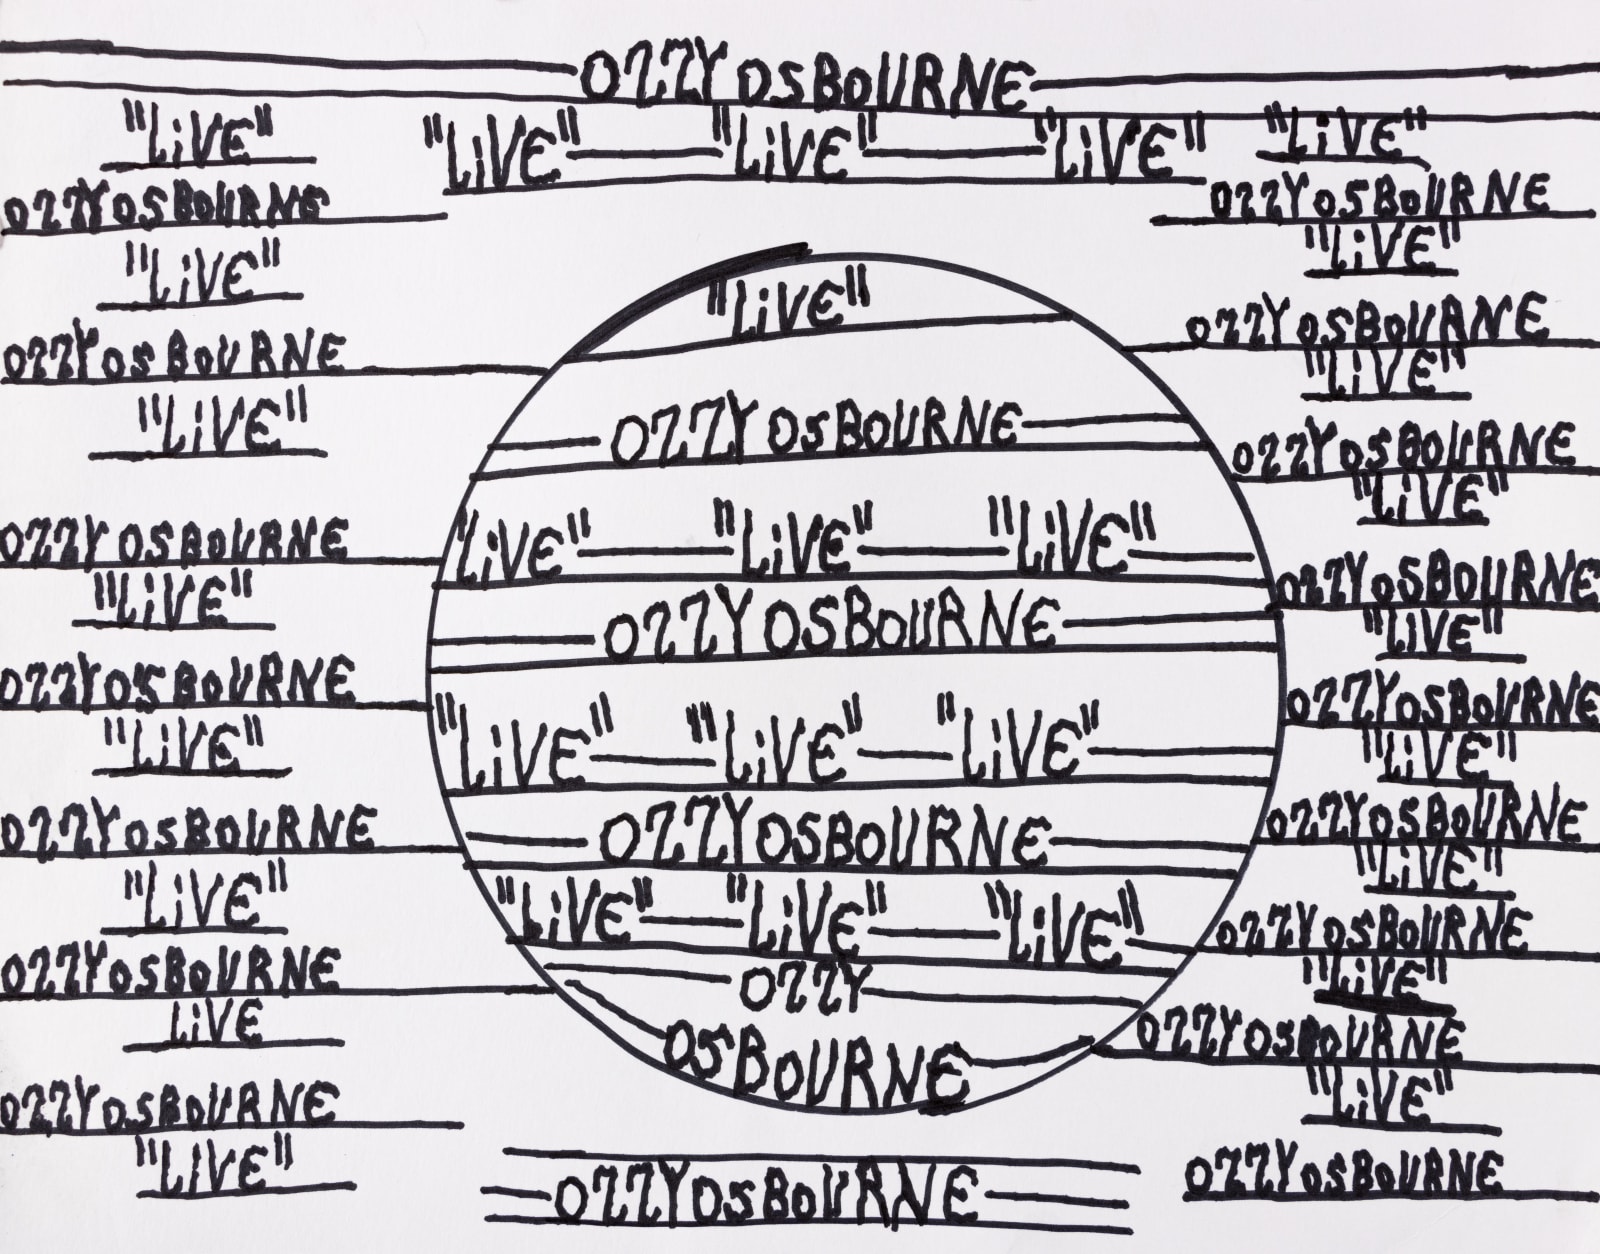 OZZY OSBOURNE
"LiVE" "LiVE" "LiVE"
"LiVE"
OZZY OSBOURNE
"LiVE"
OZZY OSBOURNE
"LiVE"
OZZY OSBOURNE
"LiVE"
OZZY OSBOURNE
"LiVE"
OZZY OSBOURNE
"LiVE"
OZZY OSBOURNE
LiVE
OZZY OSBOURNE
"LIVE"
"LiVE"
OZZY OSBOURNE
"LiVE" "LiVE" "LiVE"
OZZY OSBOURNE
"LiVE" "LiVE" "LiVE"
OZZY OSBOURNE
"LiVE" "LiVE" "LiVE"
OZZY
OSBOURNE
OZZY OSBOURNE
"LiVE"
OZZY OSBOURNE
"LiVE"
OZZY OSBOURNE
"LiVE"
OZZY OSBOURNE
"LiVE"
OZZY OSBOURNE
"LIVE"
OZZY OSBOURNE
"LiVE"
OZZY OSBOURNE
"LiVE"
OZZY OSBOURNE
"LiVE"
OZZY OSBOURNE
"LiVE"
OZZY OSBOURNE